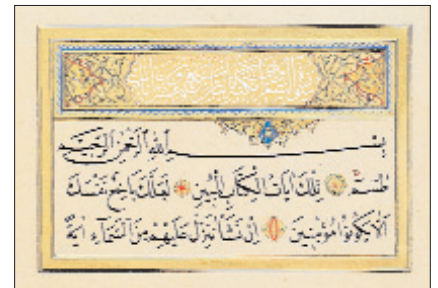 بسم الله الرحمن الرحيم
طسم تلك ايات الكتاب المبين لعلك باخع نفسك
الا يكونوا مؤمنين ان نشا ننزل عليهم من السماء اية